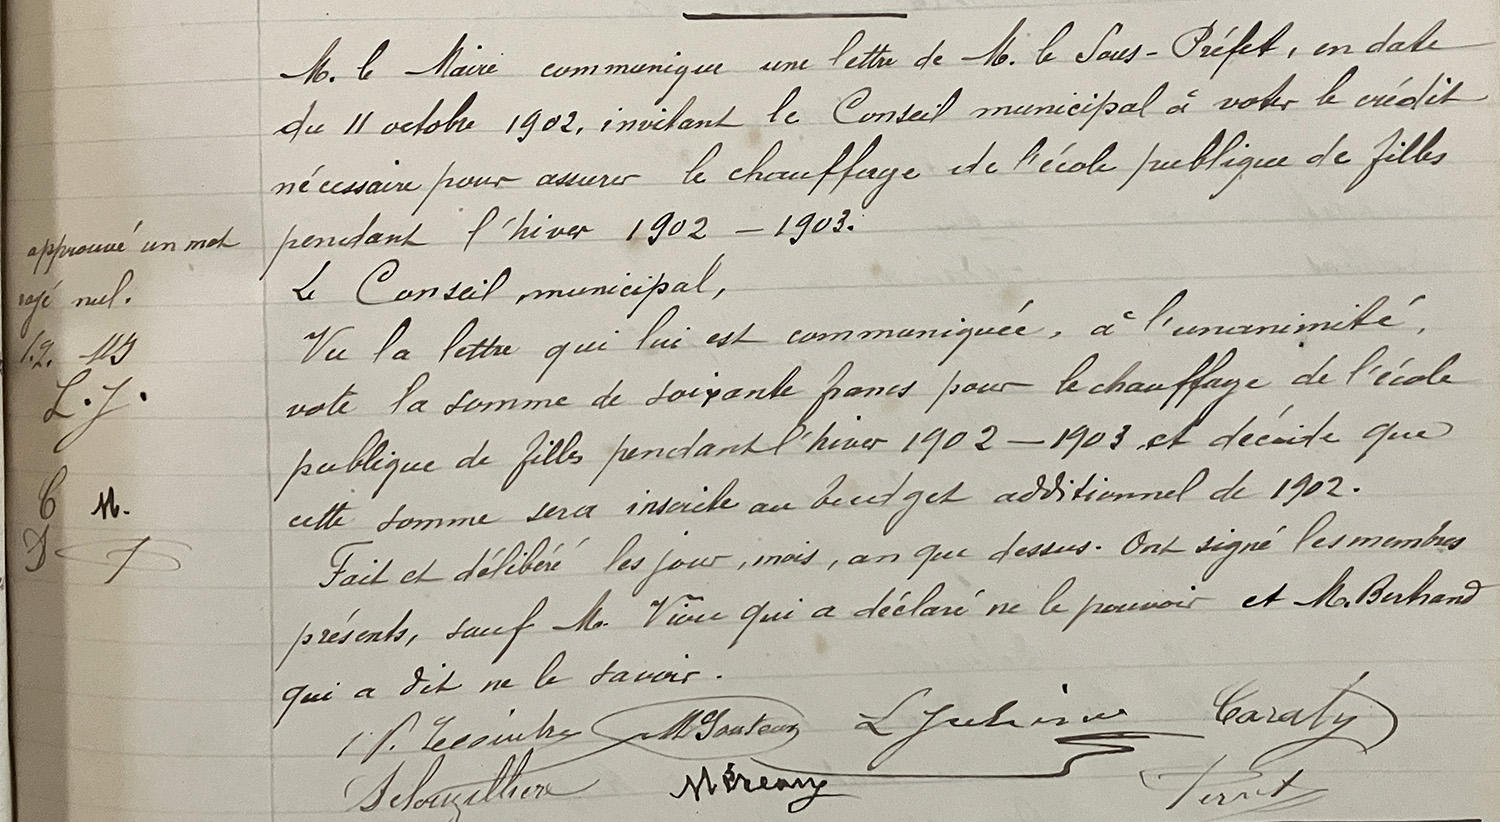 M. le Maire communique une lettre de M. le Sous-Préfet, en date
du 11 octobre 1902, invitant le Conseil municipal à voter le crédit
nécessaire pour assurer le chauffage de l'école publique de filles
pendant l'hiver 1902 – 1903.
Le Conseil municipal,
Vu la lettre qui lui est communiquée, à l'unanimité,
vote la somme de soixante francs pour le chauffage de l'école
publique de filles pendant l'hiver 1902 – 1903 et décide que
cette somme sera inscrite au budget additionnel de 1902.
Fait et délibéré les jour, mois, an que dessus. Ont signé les membres
présents, sauf M. qui a déclaré ne le pouvoir et M. Bertrand
qui a dit ne le savoir.
approuvé un mot
rayé nul.
L. J.
C M.
D